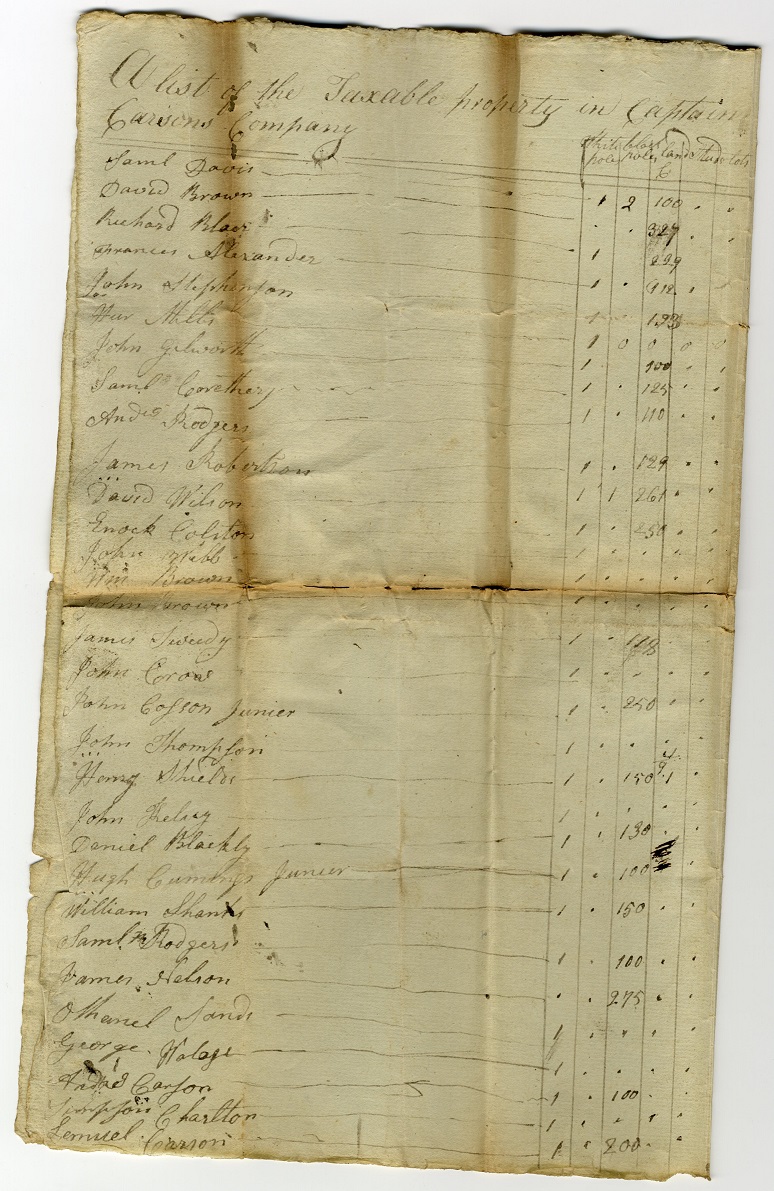 A list of the Taxable property in Captain
Carsons Company
white pole black pole land Stud lots
Saml Davis 1 2 100
David Brown 327
Richard Blair 1 229
Frances Alexander 1 912
John Stephenson 1 123
Hur Mills 1 0 0 0 0
John Gilworth 1 100
Saml Corethers 1 125
Andw Rodgers 1 110
James Robertson 1 129
David Wilson 1 1 261
Enock Colston 1 250
John Webb 1
Wm Brown 1
John Brown 1
James Tweedy 1 118
John Crow 1
John Cosson Junier 1 250
John Thompson 1
Henry Shields 1 150 1
John Kelsay 1
Daniel Blackly 1 130
Hugh Cumings Junier 1 100
William Shanks 1 150
Saml Rodgers 1 100
James Nelson 275
Othaniel Sands 1
George Walage 1
Andw Carson 1 100
Simpson Charlton 1
Lemuel Carson 1 200